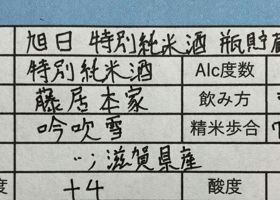 旭日 特別純米酒 瓶貯蔵
特別純米酒 Alc度数
藤居本家 飲み方
吟吹雪 精米歩合
〃；滋賀県産
度 +4 酸度